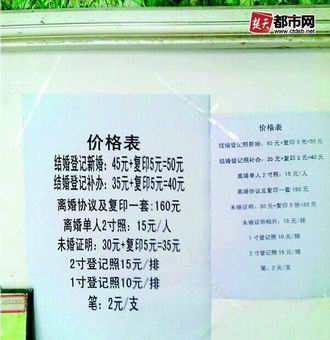 楚天都市网
www.ctdsb.net
价格表
结婚登记新婚：45元+复印5元=50元
结婚登记补办：35元+复印5元=40元
离婚协议及复印一套：160元
离婚单人2寸照：15元/人
未婚证明：30元+复印5元=35元
2寸登记照15元/排
1寸登记照10元/排
笔：2元/支
价格表
结婚登记照新婚：45元+复印5元=50元
结婚登记照补办：35元+复印5元=40元
离婚单人2寸照：15元/人
离婚协议及复印一套160元
未婚证明：30元+复印3张=33元
未婚证明相片：15元/排
1寸登记照10元/排
2寸登记照15元/排
笔：2元/支